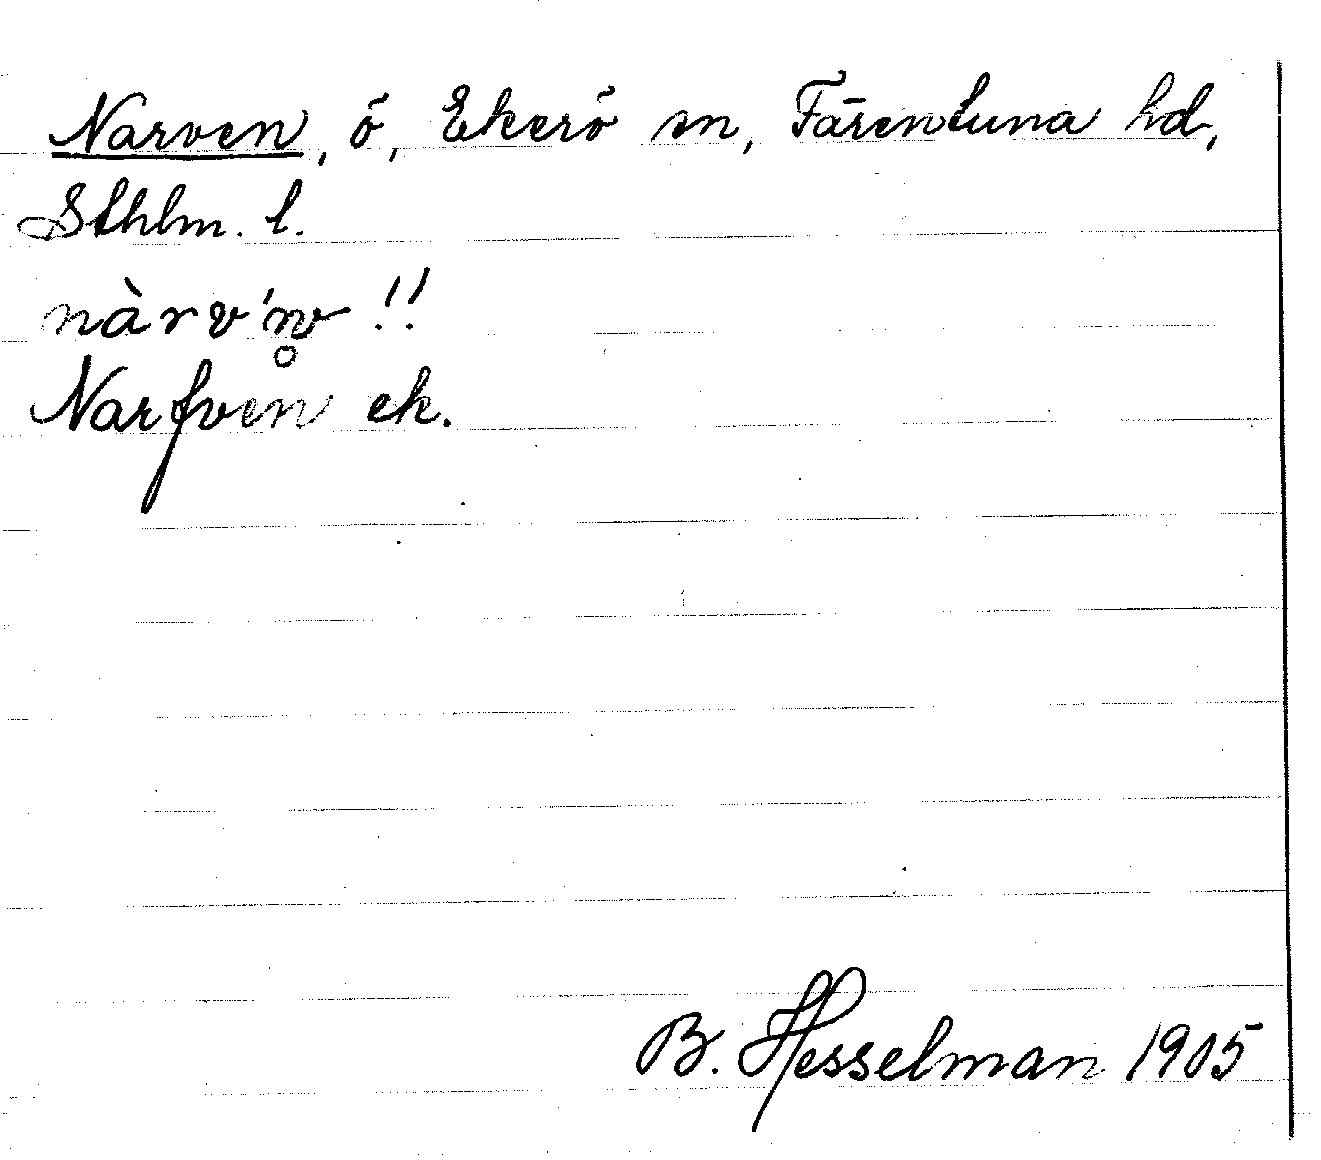 Narven, ö, Ekerö sn, Färentuna hd,
Sthlm. l.
nàrv'n̥ !!
Narfven ek.
B. Hesselman 1905